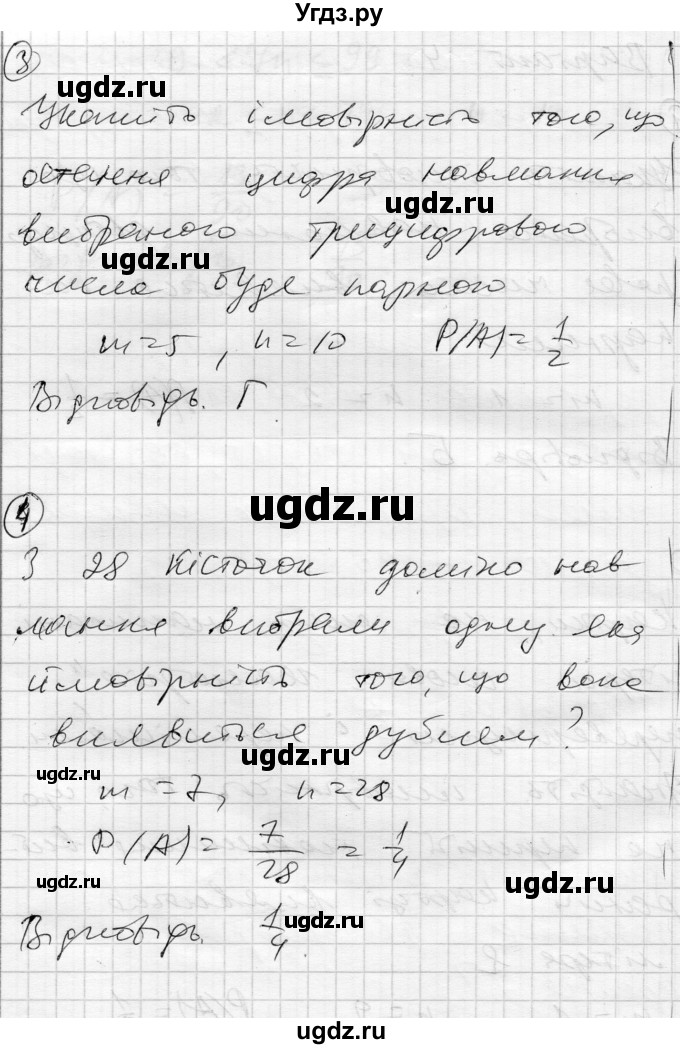 Угдз.ру
3
Укажіть імовірність того, що
остання цифра навмання
вибраного трицифрового
числа буде парною
m=5, n=10 P(A)=1/2
Відповідь. Г
4
З 28 кісточок доміно нав
мання вибрали одну. яка
ймовірність того, що вона
виявиться дублем?
m=7, n=28
P(A)=7/28=1/4
Відповідь. 1/4
ugdz.ru
ugdz.ru
ugdz.ru
ugdz.ru
ugdz.ru
ugdz.ru
ugdz.ru
ugdz.ru
ugdz.ru
ugdz.ru
ugdz.ru
ugdz.ru
ugdz.ru